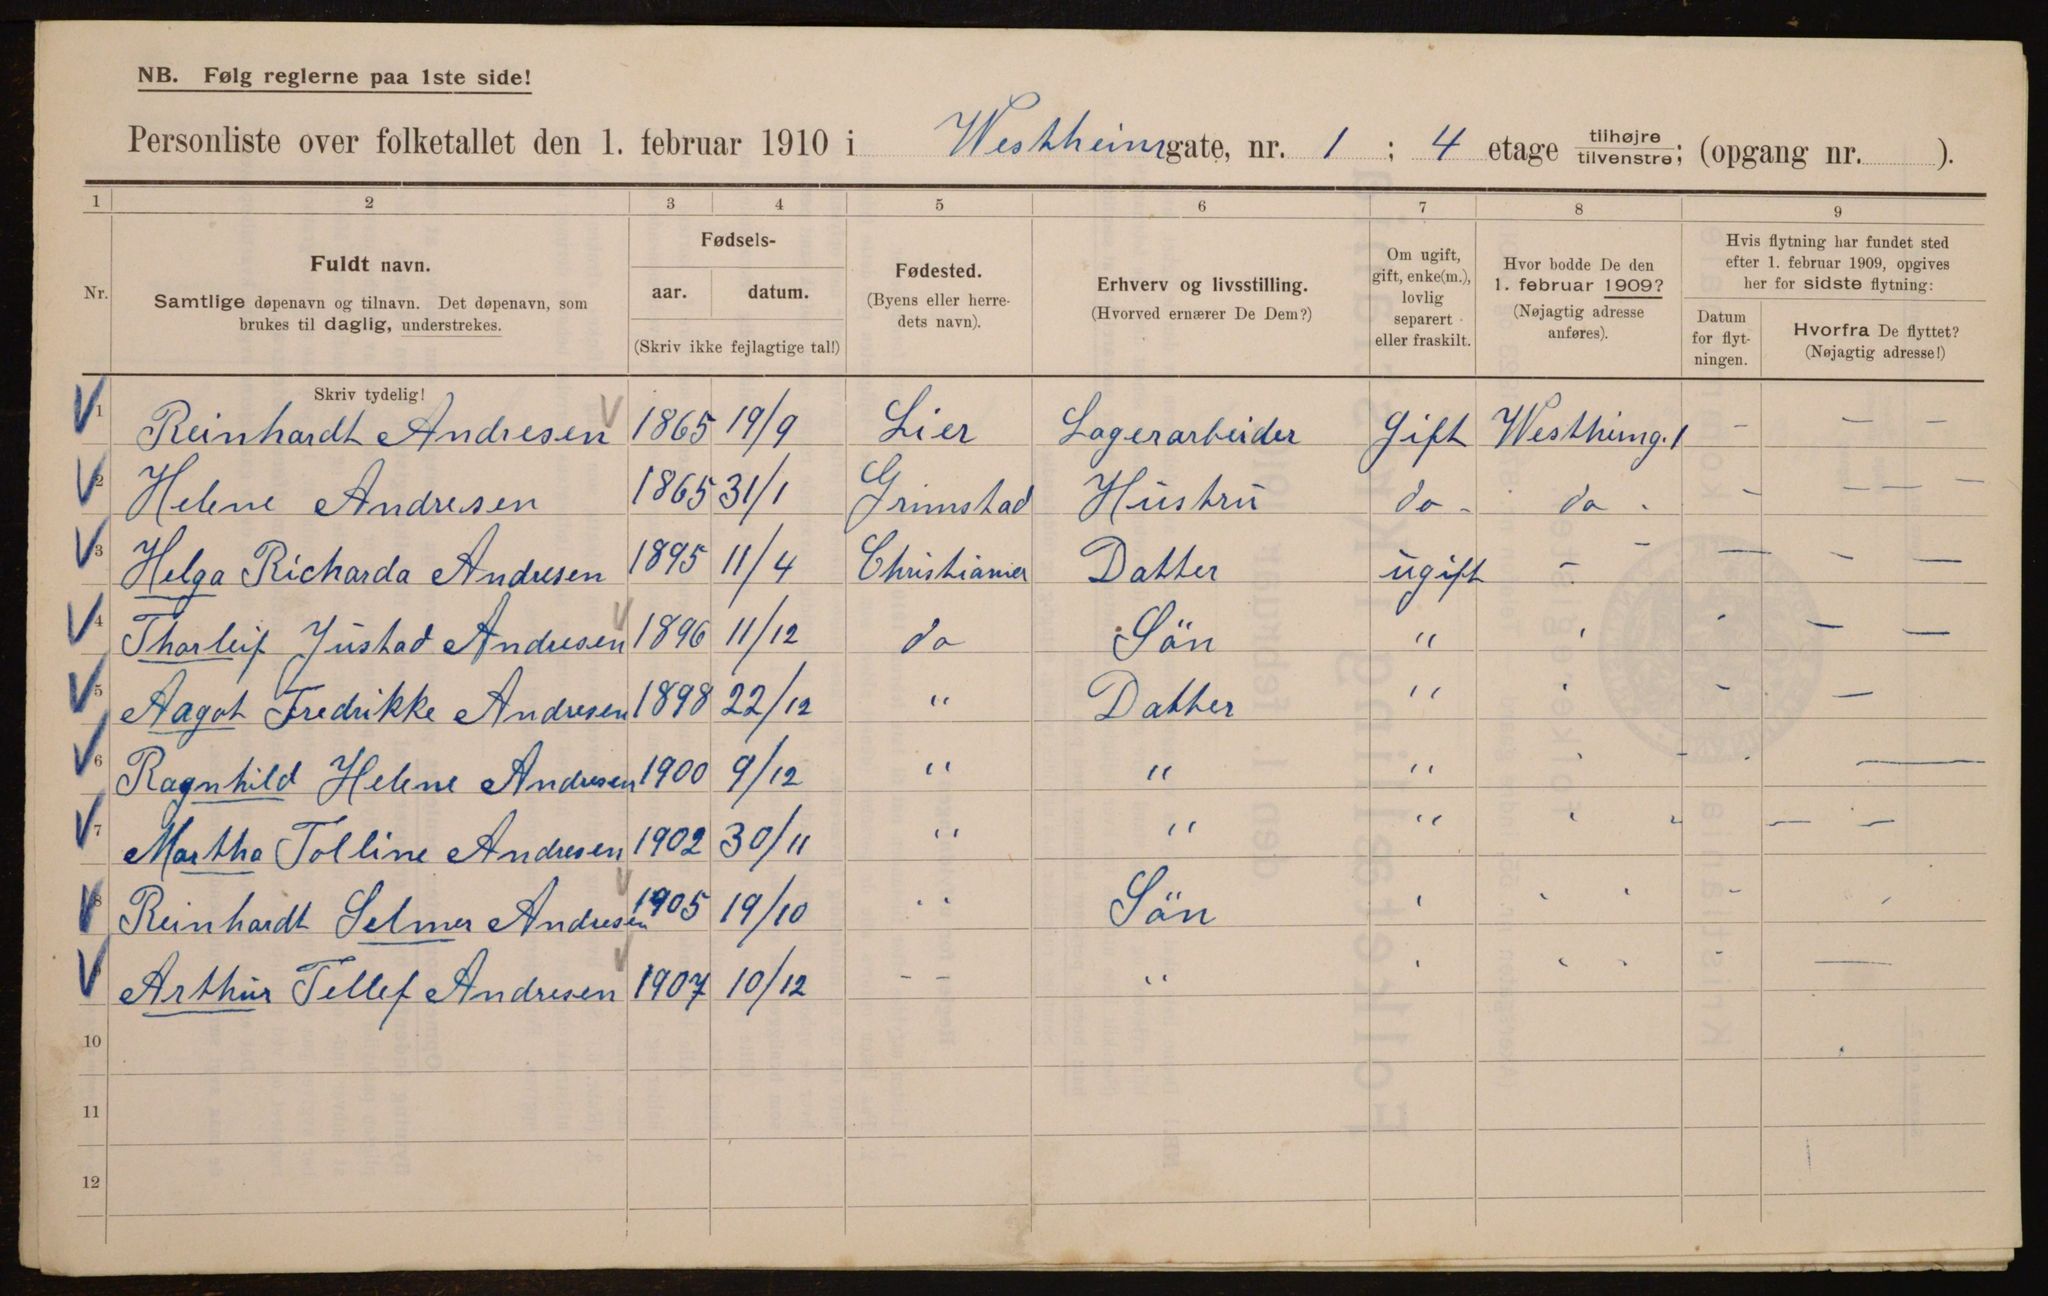 NB. Følg reglerne paa 1ste side!
Personliste over folketallet den 1. februar 1910 i Westheimgate, nr. 1; 4 etage tilhøjre tilvenstre; (opgang nr. ).
1 2 3 4 5 6 7 8 9
Nr.
Fuldt navn.
Samtlige døpenavn og tilnavn. Det døpenavn, som
brukes til daglig, understrekes.
Fødsels-
aar. datum.
(Skriv ikke fejlagtige tal!)
Fødested.
(Byens eller herre-
dets navn).
Erhverv og livsstilling.
(Hvorved ernærer De Dem?)
Om ugift,
gift, enke(m.),
lovlig
separert
eller fraskilt.
Hvor bodde De den
1. februar 1909?
(Nøjagtig adresse
anføres).
Hvis flytning har fundet sted
efter 1. februar 1909, opgives
her for sidste flytning:
Datum
for flyt-
ningen.
Hvorfra De flyttet?
(Nøjagtig adresse!)
Skriv tydelig!
1 Reinhardt Andresen 1865 19/9 Lier Lagerarbeider Gift Westheimg. 1 – – –
2 Helene Andresen 1865 31/1 Grimstad Hustru do - do - – – – –
3 Helga Richarda Andresen 1895 11/4 Christiania Datter ugift – – – – –
4 Thorleif Justad Andresen 1896 11/12 do Sön " ' – – –
5 Aagot Fredrikke Andresen 1898 22/12 " Datter " ' – –
6 Ragnhild Helene Andresen 1900 9/12 " " " ' – –
7 Martha Tolline Andresen 1902 30/11 " " " ' – –
8 Reinhardt Selmer Andresen 1905 19/10 " Sön ' ' ' –
9 Arthur Tellef Andresen 1907 10/12 - - " ' ' ' –
10
11
12